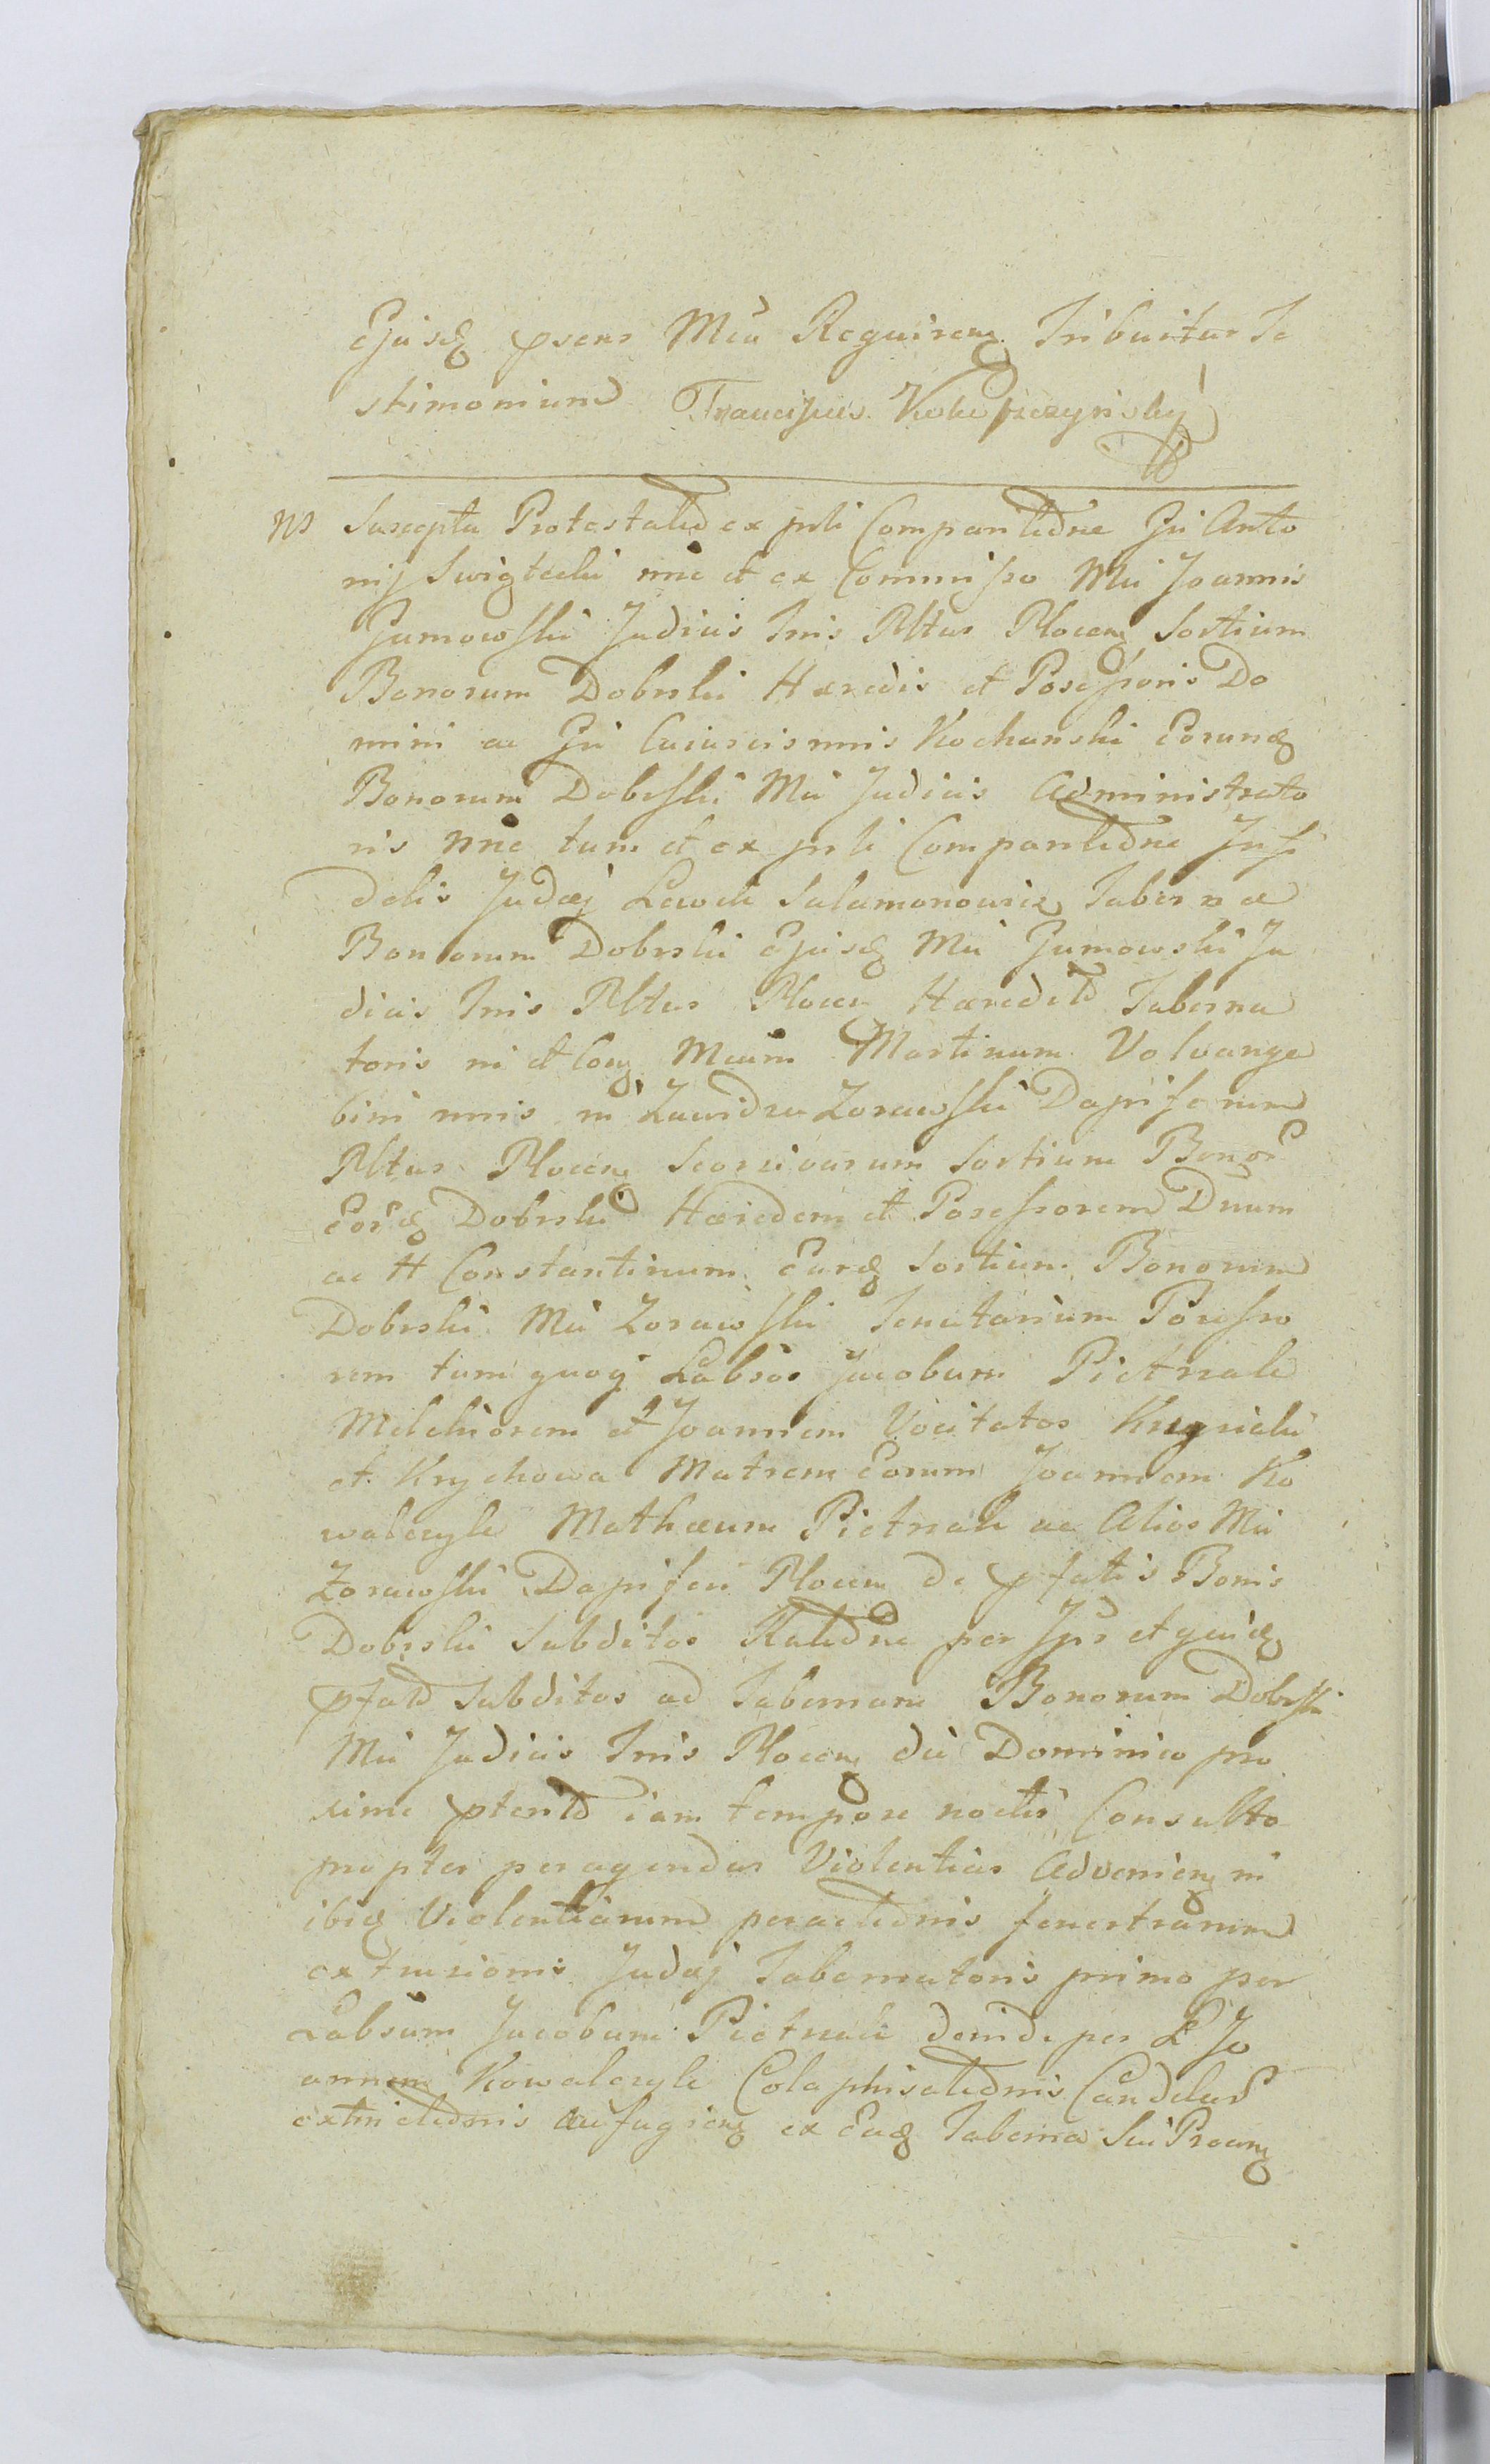 Ejusq psens Mci Requireng Tribuitur Te
stimonium Franciscus
Ns Suscepta Protestatio ex psli Comparitione Gsi Anto
nij Swigtecki nne et ex Commisso Mci Joannis
Gumowski Judicis Tnis Pltus Plocen Sortium
Bonorum Dobrski Hæredis et Posesoris Do
mini ac Gsi nnis Kochanski Eorumq
Bonorum Dobrski Mci Judicis Administrato
ris nne tum et ex psli Comparitione Infi
delis Judæj Lewek Salamonowicz Tabernæ
Bonorum Dobrski Ejusq Mci Gumowski Ju
dicis Tnis Pltus Plocen Hæredit Taberna
toris ni et Cong Mcum Martinum
nnis ni Zawidzu Zorawski Dapiferum
Pltus Plocen Seorsivarum Sortium Bonor
Eorq Dobrski Hæredem et Posessorem Dnum
ac H Constantinum Earq Sortium Bonorum
Dobrski Mci Zorawski Tenutarium Posesso
rem tum quoq Labsos Jacobum Pietrzak
Melchiorem et Joannem Vocitatos
et Krychowa Matrem Eorum Joannem Ko
walczyk Mathæum Pietrzak ac Alios Mci
Zorawski Dapiferi Plocen de pfatis Bonis
Dobrski Subditos Ratione per Ips et
pfat Subditos ad Tabernam Bonorum Dobrski
Mci Judicis Tnis Plocen die Dominico pro
xime pterit iam tempore noctis Consulto
propter peragendas Violentias Advenieng ni
ibiq Violentiarum peractionis fenestrarum
extrusionis Judæj Tabernatoris primo per
Labsum Jacobum Pietrzak deinde per L Jo
annem Kowalczyk Colaphisationis Candelar
extinctionis aufugieng ex Eaq Taberna Sui